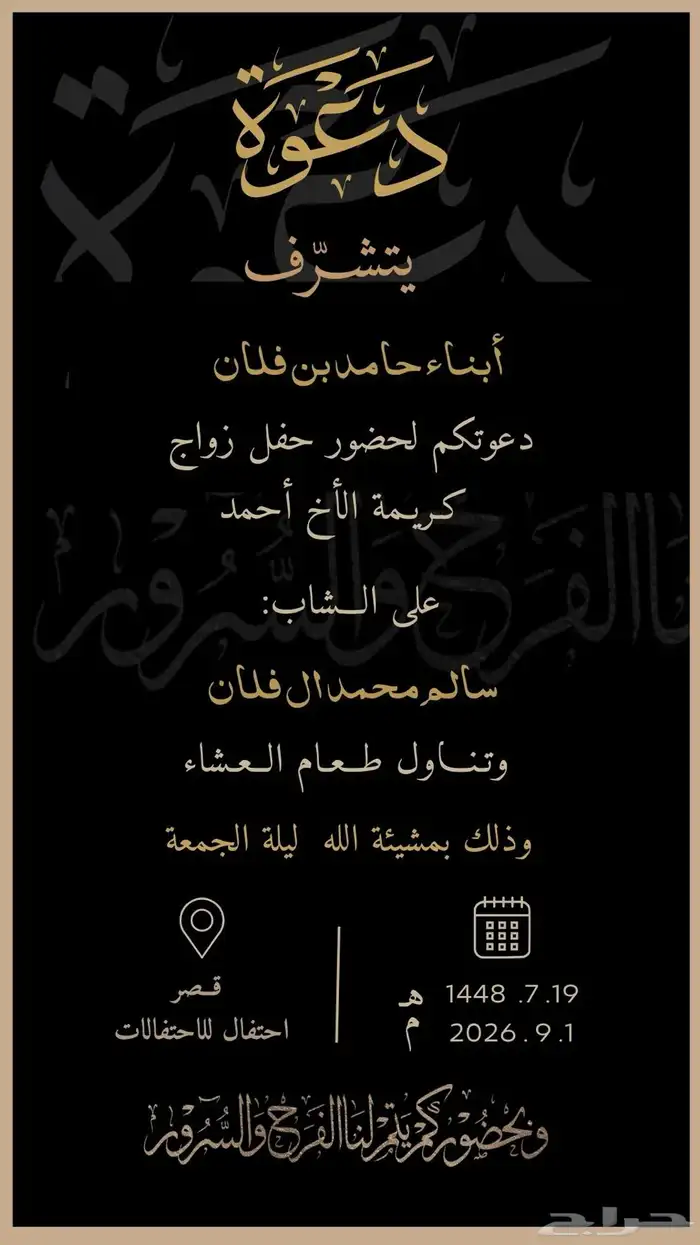 دعوة
يتشرّف
أبناء حامد بن فلان
دعوتكم لحضور حفل زواج
كريمة الأخ أحمد
على الشاب:
سالم محمد ال فلان
وتناول طعام العشاء
وذلك بمشيئة الله ليلة الجمعة
1448 .7 .19 هـ
2026 . 9 .1 م
قصر
احتفال للاحتفالات
وبحضوركم يتم لنا الفرح والسرور
حراج